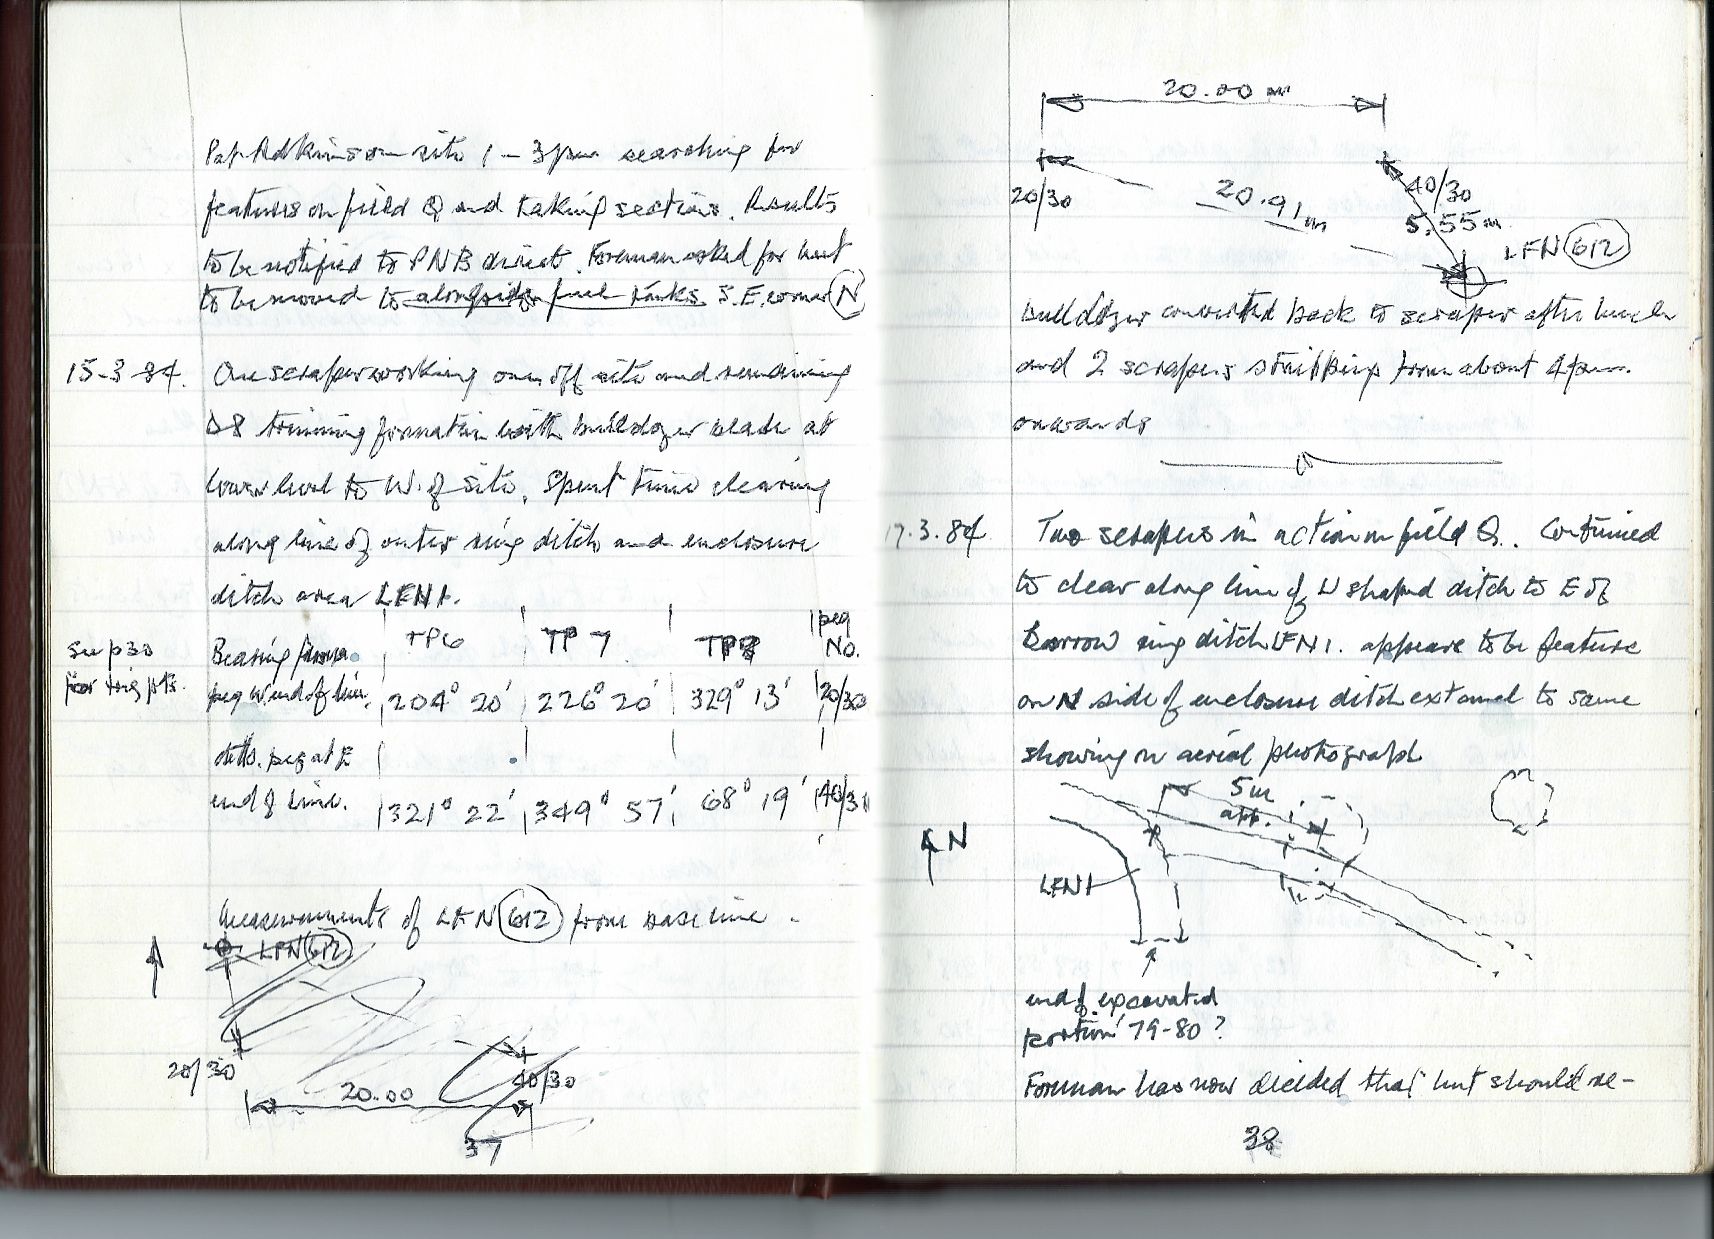 Pat Adkins on site 1 – 3pm searching for
features on field Q and taking sections. Results
to be notified to PNB direct. Foreman asked for hut
to be moved to alongside fuel tanks S.E. corner N
15-3-84. One scraper working on off site and remaining
D8 trimming formation with bulldozer blade at
lower level to W. of site. Spent time clearing
along line of outer ring ditch and enclosure
ditch area LFN1.
See p30 for trig pts.
Bearing from TP6 TP7 TP8 peg No.
peg W end of line. 204° 20' 226° 20' 329° 13' 20/30
ditto. peg at E
end of line. 321° 22' 349° 57' 68° 19' 40/30
Measurements of LFN 612 from base line.
LFN 612
20/30
40/30
20.00
37
20.00 m
20/30
40/30
20.91m
5.55m
LFN 612
Bulldozer converted back to scraper after lunch
and 2 scrapers stripping from about 4pm.
onwards
17.3.84 Two scrapers in action on field Q. Continued
to clear along line of U shaped ditch to E of
Barrow ring ditch LFN1. appears to be feature
on N side of enclosure ditch external to same
showing on aerial photograph
5m
app.
N
LFN1
end of excavated
portion 79-80?
Foreman has now decided that hut should re-
38